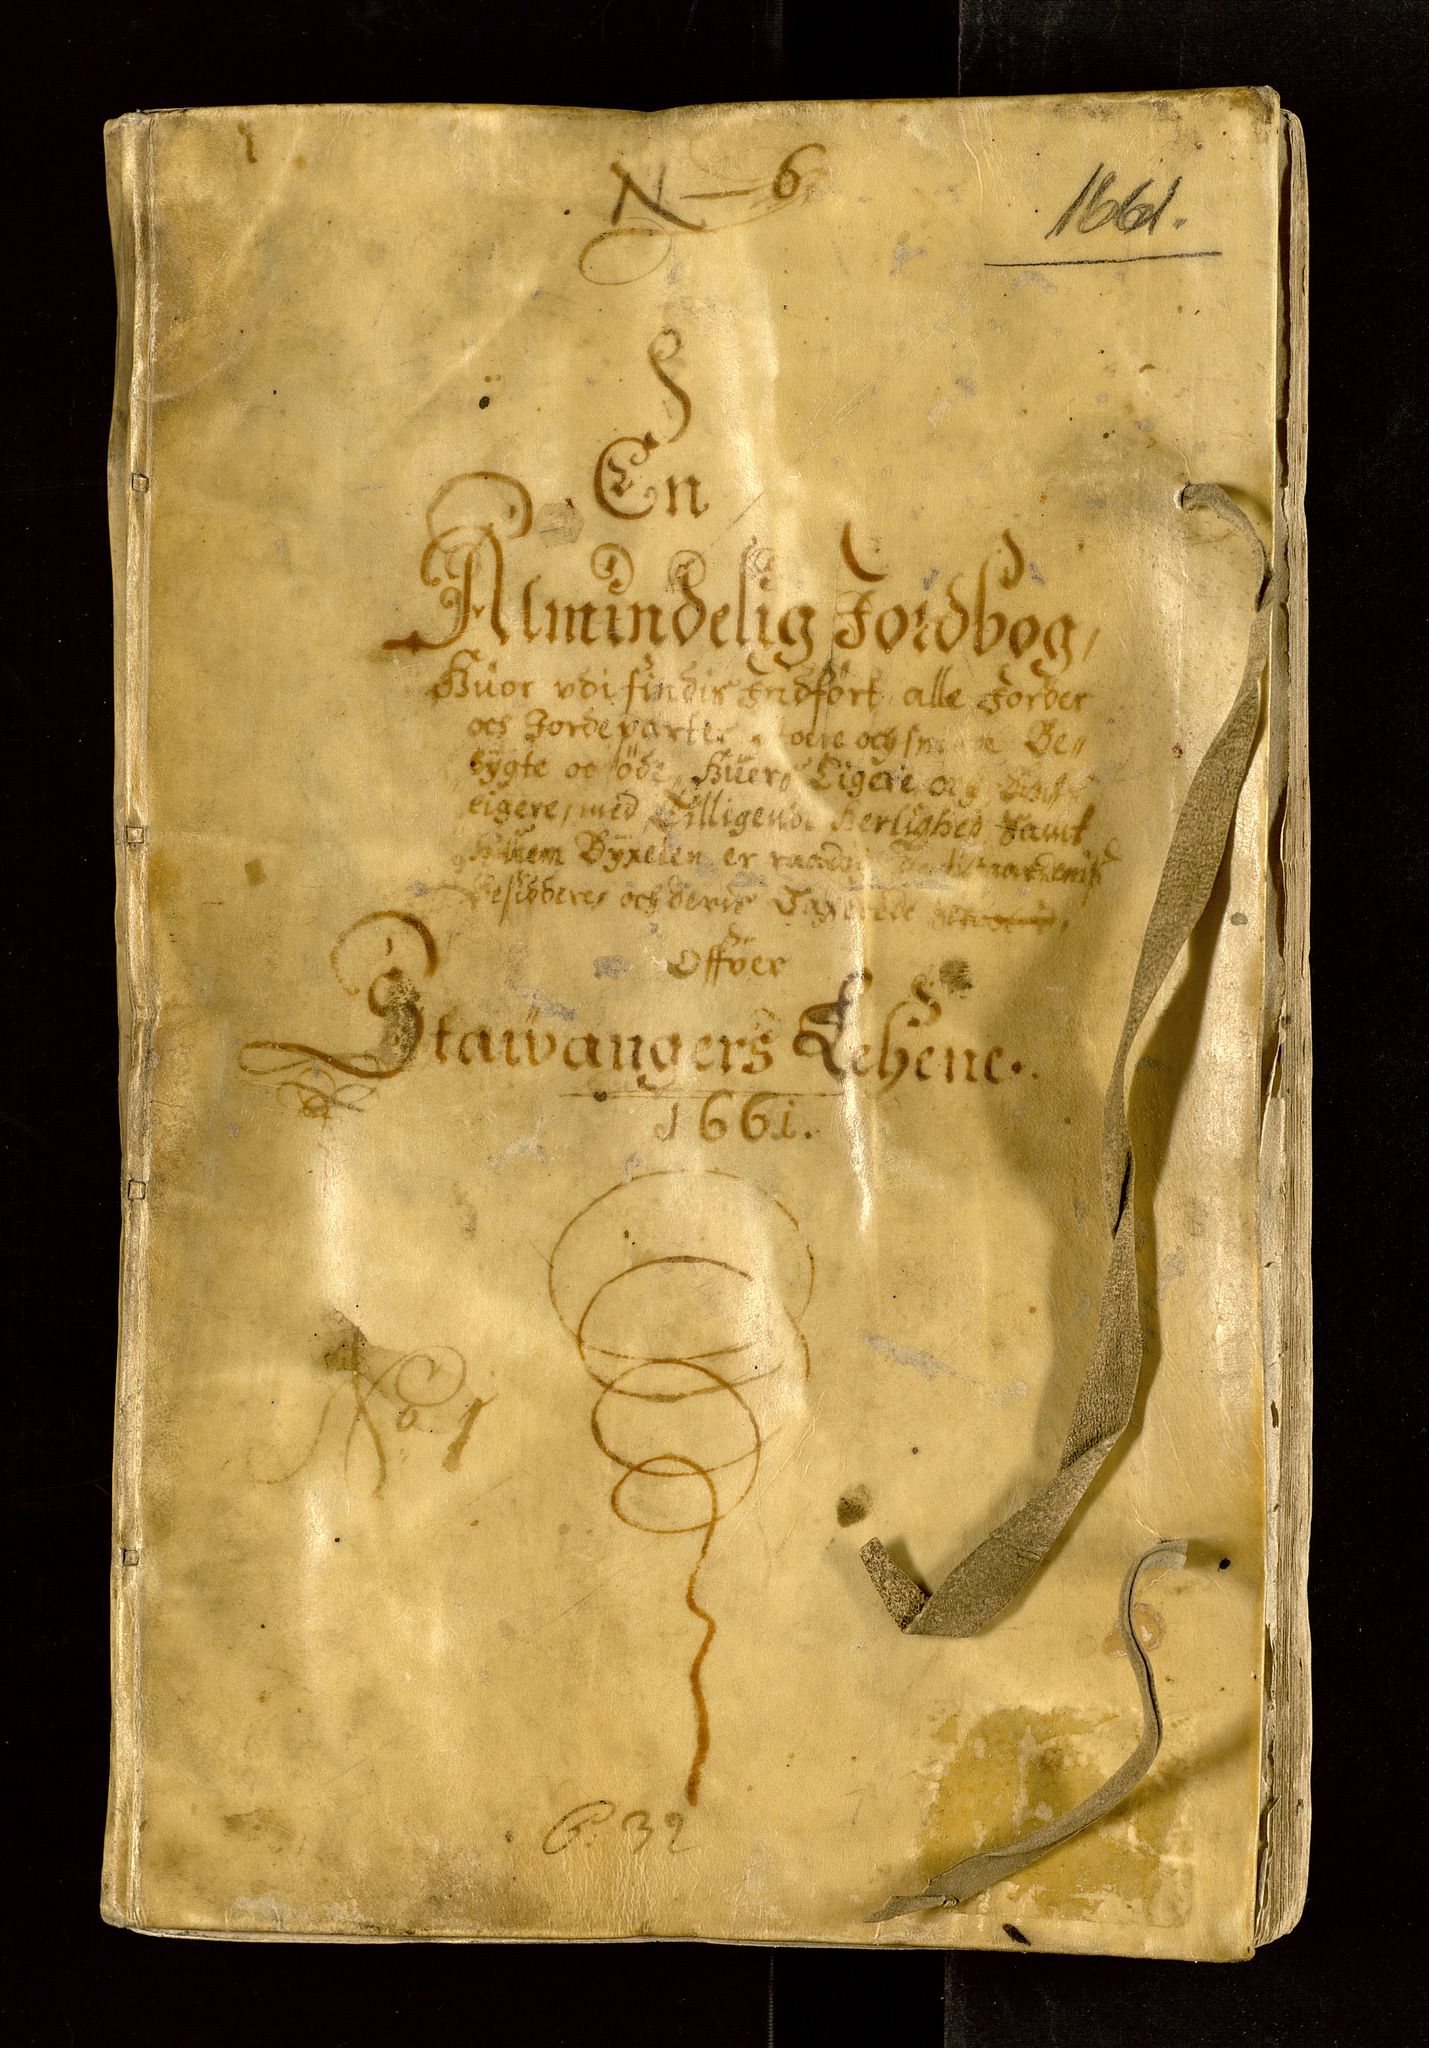 N — 6
1661.
En
Almindelig Jordbog,
Huor udi findis Indført, alle Jorder
och Jordeparter, store och smaa Be=
bygte oc øde, Huers Eigere og
eigere, med Tilligende Herlighed, samt
Huem Byxelen er raadig
Besiddere, och deris Taxerede
Offver
Stawangers Lehene.
1661.
No. 1
P. 32